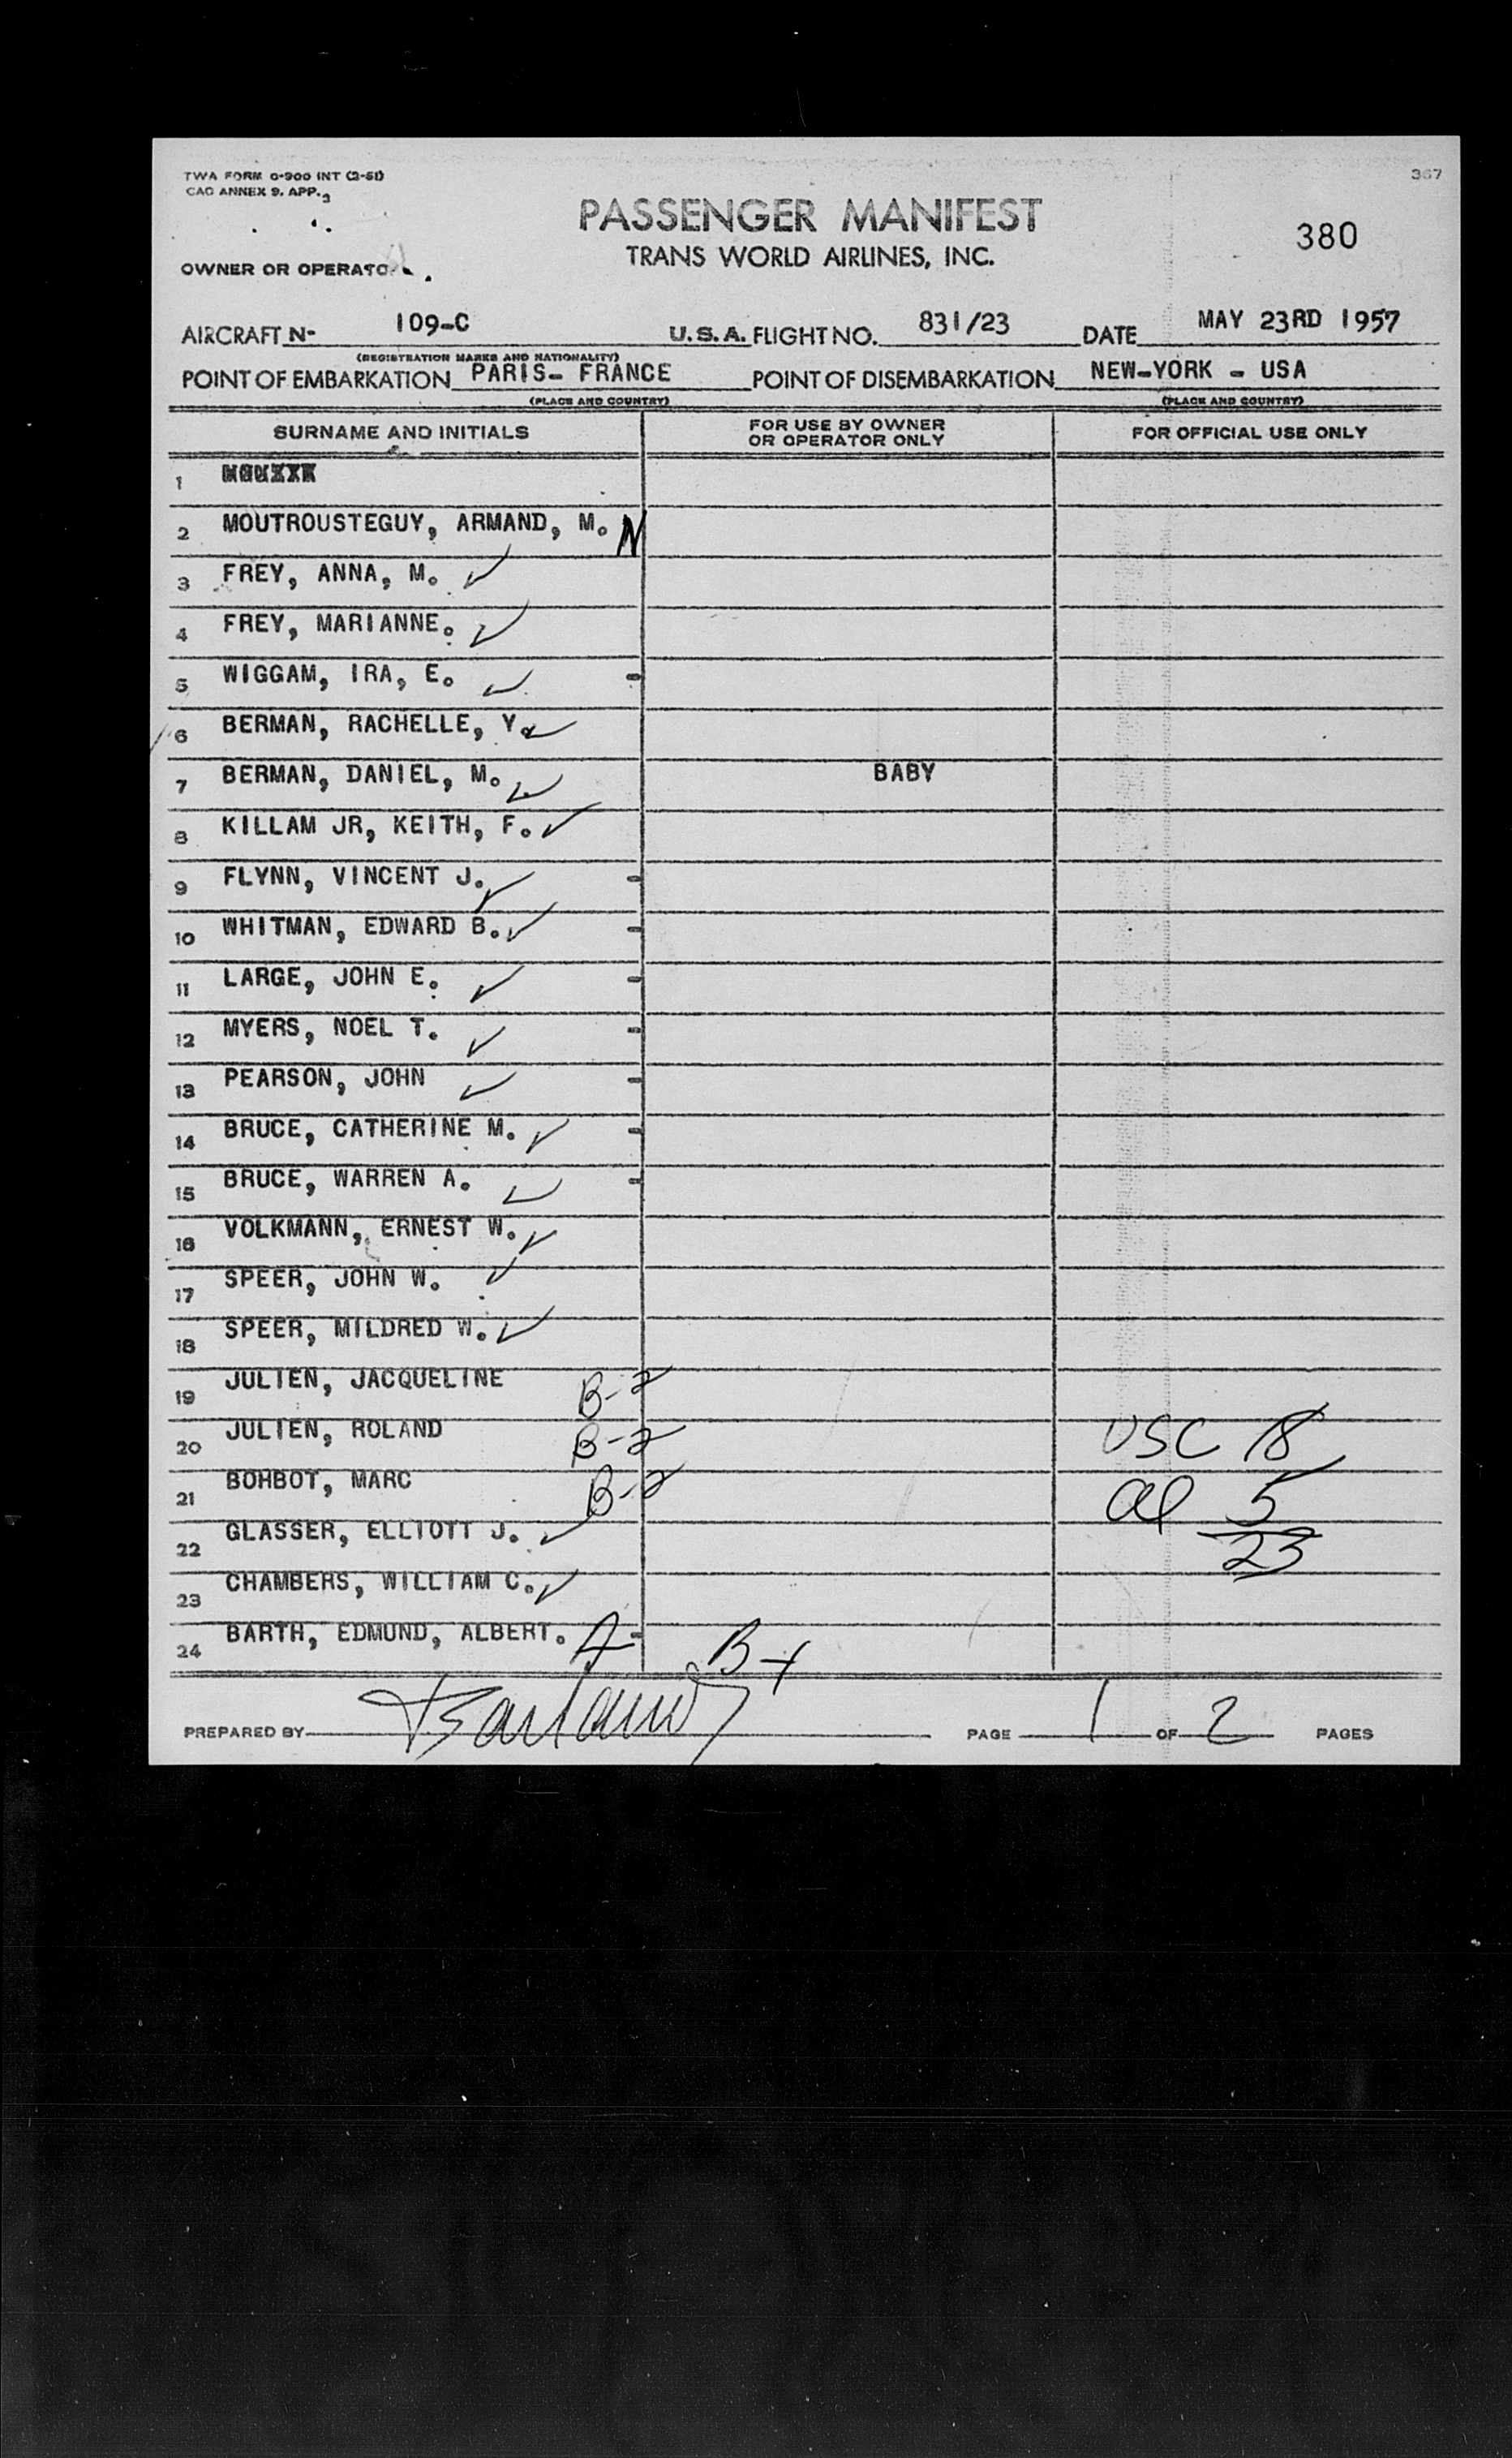 TWA FORM 0-900 INT (2-51)
CAO ANNEX 9. APP. 3
367
PASSENGER MANIFEST
380
TRANS WORLD AIRLINES, INC.
OWNER OR OPERATO
AIRCRAFT N- 109-C U.S.A. FLIGHT NO. 831/23 DATE MAY 23RD 1957
(REGISTRATION MARKS AND NATIONALITY)
POINT OF EMBARKATION PARIS- FRANCE POINT OF DISEMBARKATION NEW-YORK - USA
(PLACE AND COUNTRY) (PLACE AND COUNTRY)
SURNAME AND INITIALS FOR USE BY OWNER OR OPERATOR ONLY FOR OFFICIAL USE ONLY
1
2 MOUTROUSTEGUY, ARMAND, M. N
3 FREY, ANNA, M. ✓
4 FREY, MARIANNE. ✓
5 WIGGAM, IRA, E. ✓ -
6 BERMAN, RACHELLE, Y. ✓
7 BERMAN, DANIEL, M. ✓ BABY
8 KILLAM JR, KEITH, F. ✓
9 FLYNN, VINCENT J. ✓ -
10 WHITMAN, EDWARD B. ✓ -
11 LARGE, JOHN E. ✓ -
12 MYERS, NOEL T. ✓ -
13 PEARSON, JOHN ✓ -
14 BRUCE, CATHERINE M. ✓ -
15 BRUCE, WARREN A. ✓ -
16 VOLKMANN, ERNEST W. ✓
17 SPEER, JOHN W. ✓
18 SPEER, MILDRED W. ✓
19 JULIEN, JACQUELINE B-2
20 JULIEN, ROLAND B-2 USC 18
21 BOHBOT, MARC B-2 al 5
22 GLASSER, ELLIOTT J. ✓ 23
23 CHAMBERS, WILLIAM C. ✓
24 BARTH, EDMUND, ALBERT. A - B-1
PREPARED BY PAGE 1 OF 2 PAGES